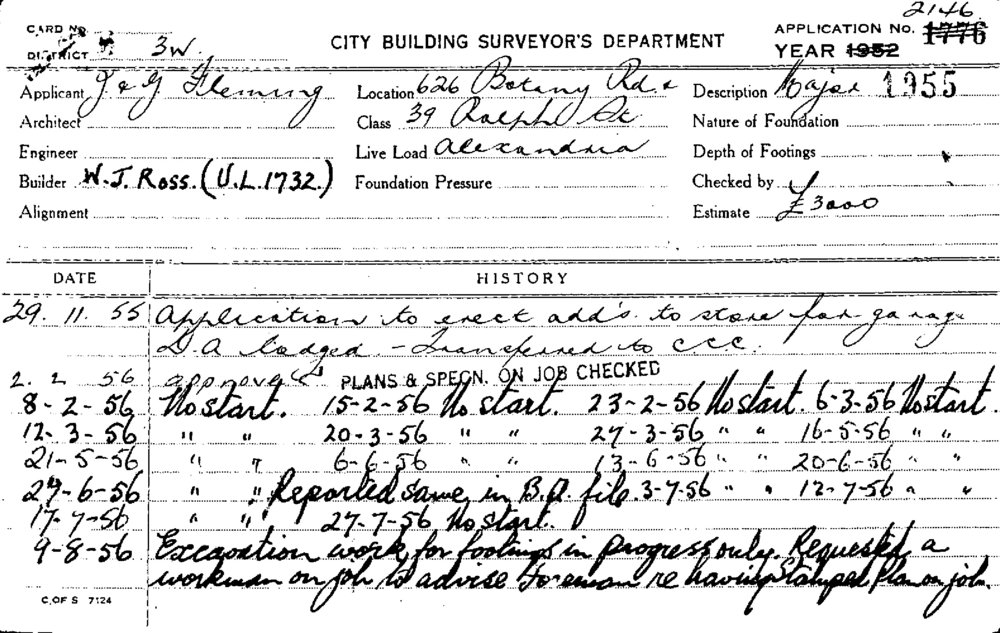 CARD No.
DISTRICT 3W.
CITY BUILDING SURVEYOR'S DEPARTMENT
2146
APPLICATION No. 1776
YEAR 1952
1955
Applicant J & G Fleming
Location 626 Botany Rd &
Description Major
Architect
Class 39 Ralph St
Nature of Foundation
Engineer
Live Load Alexandria
Depth of Footings
Builder W.J. Ross. (U.L.1732.)
Foundation Pressure
Checked by
Alignment
Estimate £3000
DATE HISTORY
29. 11. 55 Application to erect add's. to store for garage
D.A lodged - Transferred to C.C.C.
2. 2 56 approved PLANS & SPECN. ON JOB CHECKED
8-2-56 No start. 15-2-56 No start. 23-2-56 No start. 6-3-56 No start.
12-3-56 " " 20-3-56 " " 27-3-56 " " 16-5-56 " "
21-5-56 " " 6-6-56 " " 13-6-56 " " 20-6-56 " "
27-6-56 " " Reported same in B.A. file. 3-7-56 " " 12-7-56 " "
17-7-56 " " 27-7-56 No start.
9-8-56 Excavation work for footings in progress only. Requested a
workman on job to advise Foreman re having Stamped Plan on job.
C.OF S 7124